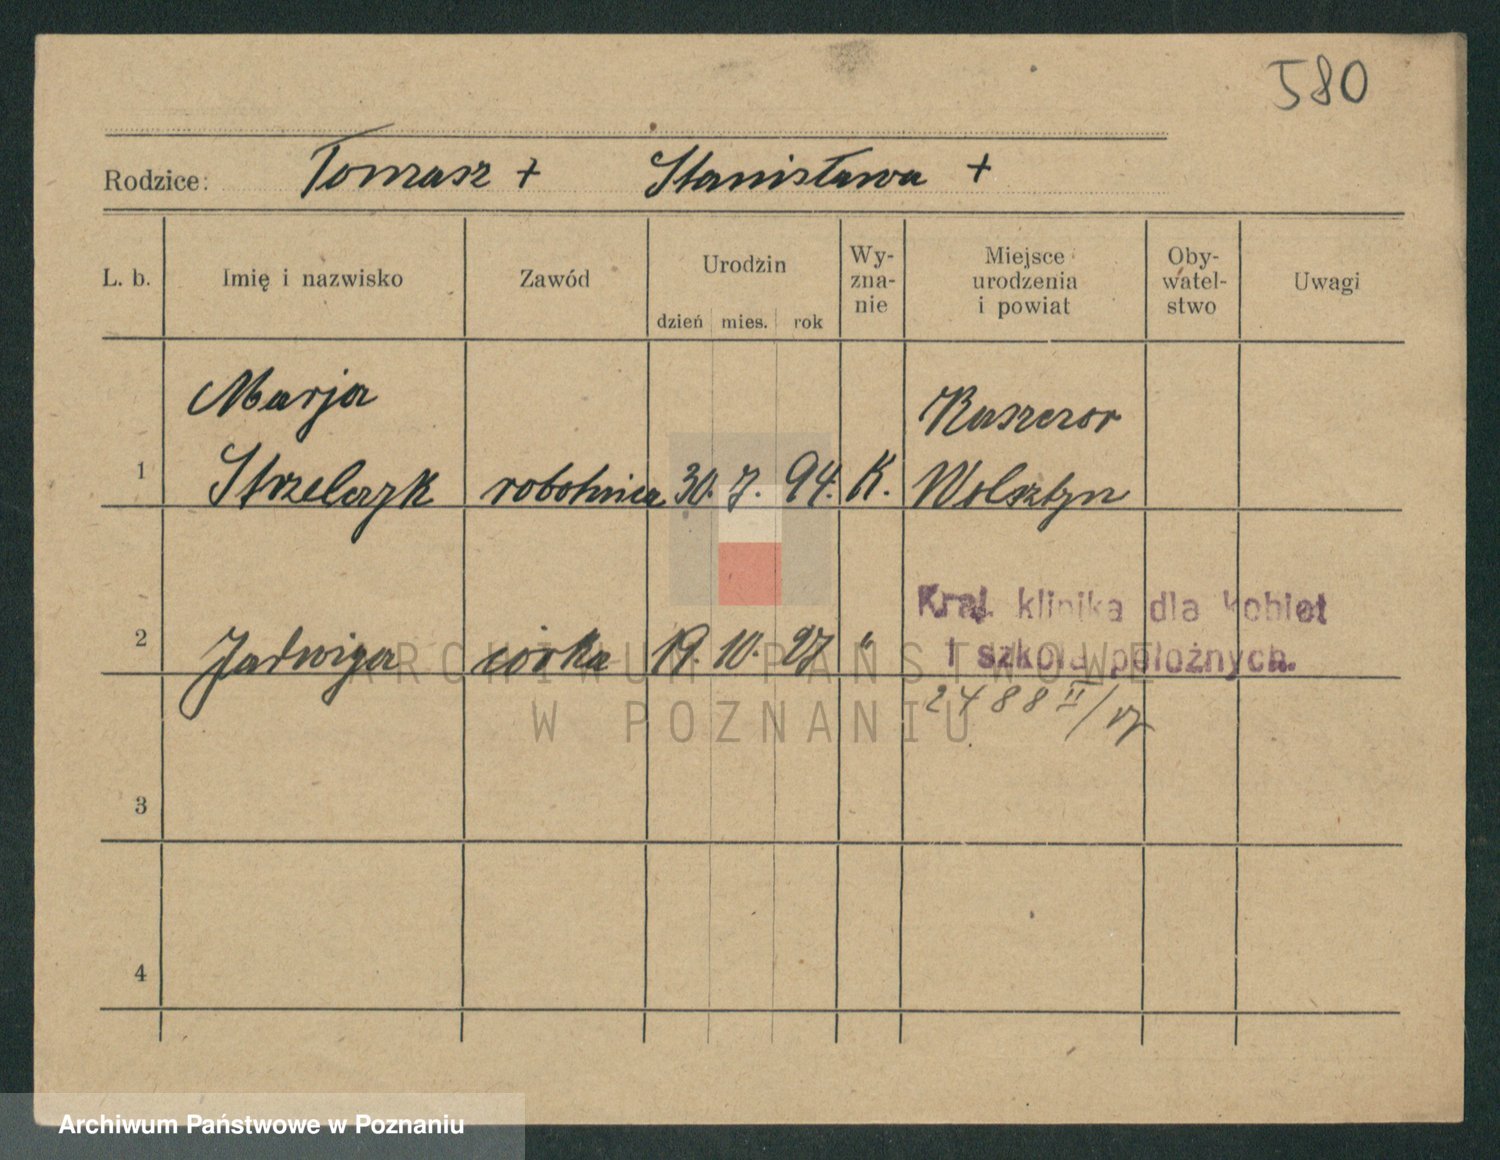 580
Rodzice: Tomasz + Stanisława +
L. b. Imię i nazwisko Zawód Urodzin dzień mies. rok Wy-zna-nie Miejsce urodzenia i powiat Oby-watel-stwo Uwagi
Marja Kaszczor
1 Strzelczyk robotnica 30. 7. 94. K. Wolsztyn
Kraj. klinika dla kobiet
2 Jadwiga córka 19. 10. 27 " i szkoła położnych.
2488 II/27
3
4
ARCHIWUM PAŃSTWOWE
W POZNANIU
Archiwum Państwowe w Poznaniu